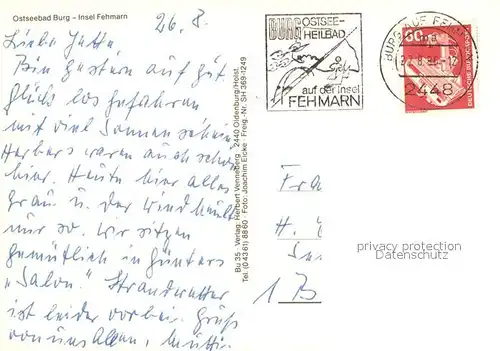 Ostseebad Burg – Insel Fehmarn
26. 8.
Liebe Jutta,
Bin gestern auf gut
Glück losgefahren
mit viel Sonnenschein
Herbers waren auch schon
hier. Heute hier alles
grau u. der Wind heult
nur so. Wir sitzen
gemütlich in Günters
"Salon". Strandwetter
ist leider vorbei. Gruß
von uns Allen, Mutti.
Bu 35 Verlag: Herbert Venneberg · 2440 Oldenburg/Holst.
Tel. (0 43 61) 88 60 · Foto: Joachim Eicke · Freig.-Nr. SH 369-1249
BURG OSTSEE-
HEILBAD
auf der Insel
FEHMARN
BURG AUF FEHMARN
2448
60
DEUTSCHE BUNDESPOST
Fra
H.
1 B
privacy protection
Datenschutz